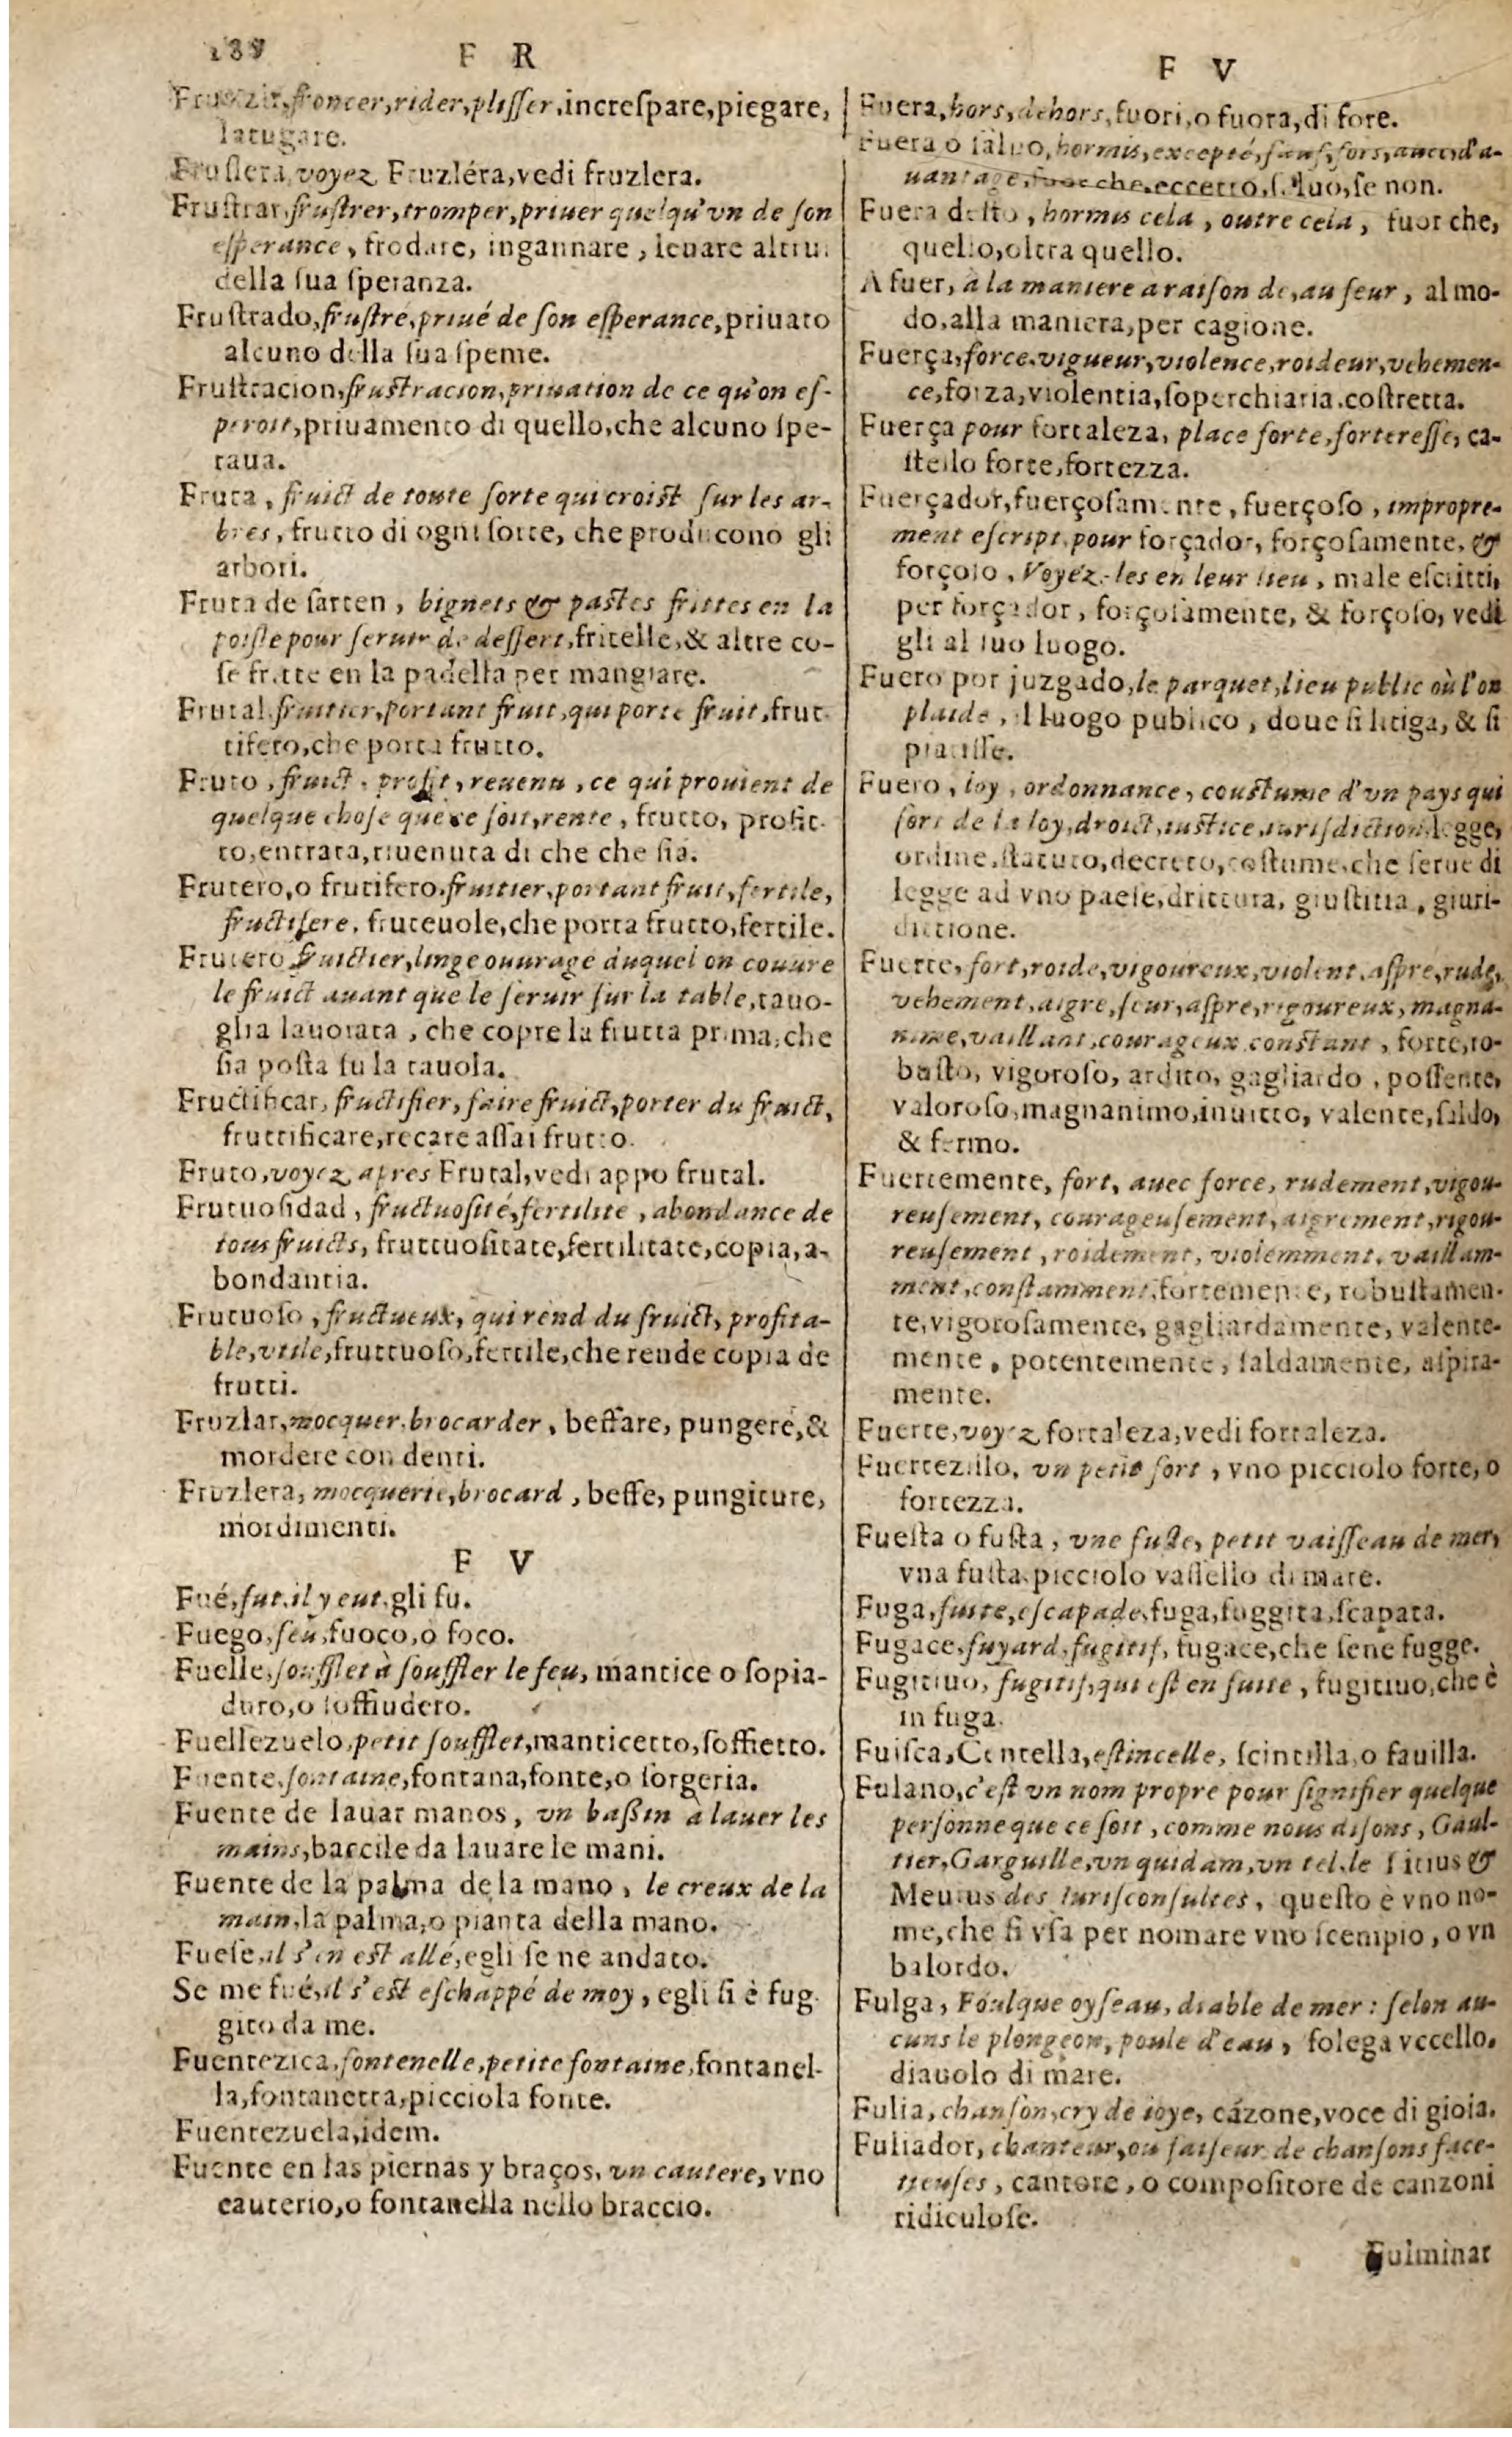 F R
froncer, rider, plisser, increſpare, piegare,
latugare.
Fruſlera, voyez Fruzléra, vedi fruzlera.
Fruſtrar, fruſtrer, tromper, priuer quelqu'vn de ſon
eſperance, frodare, ingannare, leuare altrui
della ſua ſperanza.
Fruſtrado, fruſtré, priué de ſon eſperance, priuato
alcuno della ſua ſpeme.
Fruſtracion, fruſtracion, priuation de ce qu'on eſ-
peroit, priuamento di quello, che alcuno ſpe-
raua.
Fruta, fruict de toute ſorte qui croiſt ſur les ar-
bres, frutto di ogni ſorte, che producono gli
arbori.
Fruta de ſarten, bignets & paſtes frittes en la
poiſle pour ſeruir de deſſert, fritelle, & altre co-
ſe fritte en la padella per mangiare.
Frutal, fruitier, portant fruit, qui porte fruit, frut-
tifero, che porta frutto.
Fruto, fruict, profit, reuenu, ce qui prouient de
quelque choſe que ce ſoit, rente, frutto, profit-
to, entrata, riuenuta di che che ſia.
Frutero, o frutifero, fruitier, portant fruit, fertile,
fructifere, fruteuole, che porta frutto, fertile.
Frutero fruictier, linge ouurage duquel on couure
le fruict auant que le ſeruir ſur la table, tauo-
glia lauorata, che copre la frutta prima, che
ſia poſta ſu la tauola.
Fructificar, fructifier, faire fruict, porter du fruict,
fruttificare, recare aſſai frutto.
Fruto, voyez apres Frutal, vedi appo frutal.
Frutuoſidad, fructuoſité, fertilité, abondance de
tous fruicts, fruttuoſitate, fertilitate, copia, a-
bondantia.
Frutuoſo, fructueux, qui rend du fruict, profita-
ble, vtile, fruttuoſo, fertile, che rende copia de
frutti.
Fruzlar, mocquer, brocarder, beffare, pungere, &
mordere con denti.
Fruzlera, mocquerie, brocard, beffe, pungiture,
mordimenti.
F V
Fué, fut, il y eut, gli fu.
Fuego, feu, fuoco, o foco.
Fuelle, ſoufflet à ſouffler le feu, mantice o ſopia-
duro, o ſoffiudero.
Fuellezuelo, petit ſoufflet, manticetto, ſoffietto.
Fuente, fontaine, fontana, fonte, o ſorgeria.
Fuente de lauar manos, vn baßin à lauer les
mains, baccile da lauare le mani.
Fuente de la palma de la mano, le creux de la
main, la palma, o pianta della mano.
Fueſe, il s'en eſt allé, egli ſe ne andato.
Se me fué, il s'eſt eſchappé de moy, egli ſi è fug
gito da me.
Fuentezica, fontenelle, petite fontaine, fontanel-
la, fontanetta, picciola fonte.
Fuentezuela, idem.
Fuente en las piernas y braços, vn cautere, vno
cauterio, o fontanella nello braccio.
F V
Fuera, hors, dehors, fuori, o fuora, di fore.
Fuera o ſaluo, hormis, excepté, ſauf, fors, auec, d'a-
uantage, fuor che, eccetto, ſaluo, ſe non.
Fuera deſto, hormis cela, outre cela, fuor che,
quello, oltra quello.
A fuer, à la maniere a raiſon de, au feur, al mo-
do, alla maniera, per cagione.
Fuerça, force, vigueur, violence, roideur, vehemen-
ce, forza, violentia, ſoperchiaria, coſtretta.
Fuerça pour fortaleza, place forte, fortereſſe, ca-
ſtello forte, fortezza.
Fuerçador, fuerçoſamente, fuerçoſo, impropre-
ment eſcript, pour forçador, forçoſamente, &
forçoſo, Voyéz-les en leur lieu, male eſcritti,
per forçador, forçoſamente, & forçoſo, vedi
gli al ſuo luogo.
Fuero por juzgado, le parquet, lieu public où l'on
plaide, il luogo publico, doue ſi litiga, & ſi
piatiſſe.
Fuero, loy, ordonnance, couſtume d'vn pays qui
ſert de la loy, droict, iuſtice, iuriſdiction, legge,
ordine, ſtatuto, decreto, coſtume, che ſerue di
legge ad vno paeſe, drittura, giuſtitia, giuri-
dittione.
Fuerte, fort, roide, vigoureux, violent, aſpre, rude,
vehement, aigre, ſeur, aſpre, rigoureux, magna-
nime, vaillant, courageux, conſtant, forte, ro-
buſto, vigoroſo, ardito, gagliardo, poſſente,
valoroſo, magnanimo, inuitto, valente, ſaldo,
& fermo.
Fuertemente, fort, auec force, rudement, vigou-
reuſement, courageuſement, aigrement, rigou-
reuſement, roidement, violemment, vaillam-
ment, conſtamment, fortemente, robuſtamen-
te, vigoroſamente, gagliardamente, valente-
mente, potentemente, ſaldamente, aſpira-
mente.
Fuerte, voyez fortaleza, vedi fortaleza.
Fuertezillo, vn petit fort, vno picciolo forte, o
fortezza.
Fueſta o fuſta, vne fuſte, petit vaiſſeau de mer,
vna fuſta, picciolo vaſſello di mare.
Fuga, fuite, eſcapade, fuga, fuggita, ſcapata.
Fugace, fuyard, fugitif, fugace, che ſene fugge.
Fugitiuo, fugitif, qui eſt en fuite, fugitiuo, che è
in fuga.
Fuiſca, Centella, eſtincelle, ſcintilla, o fauilla.
Fulano, c'eſt vn nom propre pour ſignifier quelque
perſonne que ce ſoit, comme nous diſons, Gaul-
tier, Garguille, vn quidam, vn tel, le Titius &
Meuius des Iuriſconſultes, queſto è vno no-
me, che ſi vſa per nomare vno ſcempio, o vn
balordo.
Fulga, Foulque oyſeau, diable de mer: ſelon au-
cuns le plongeon, poule d'eau, folega vccello,
diauolo di mare.
Fulia, chanſon, cry de ioye, cázone, voce di gioia.
Fuliador, chanteur, ou faiſeur de chanſons face-
tieuſes, cantore, o compoſitore de canzoni
ridiculoſe.
Fulminar